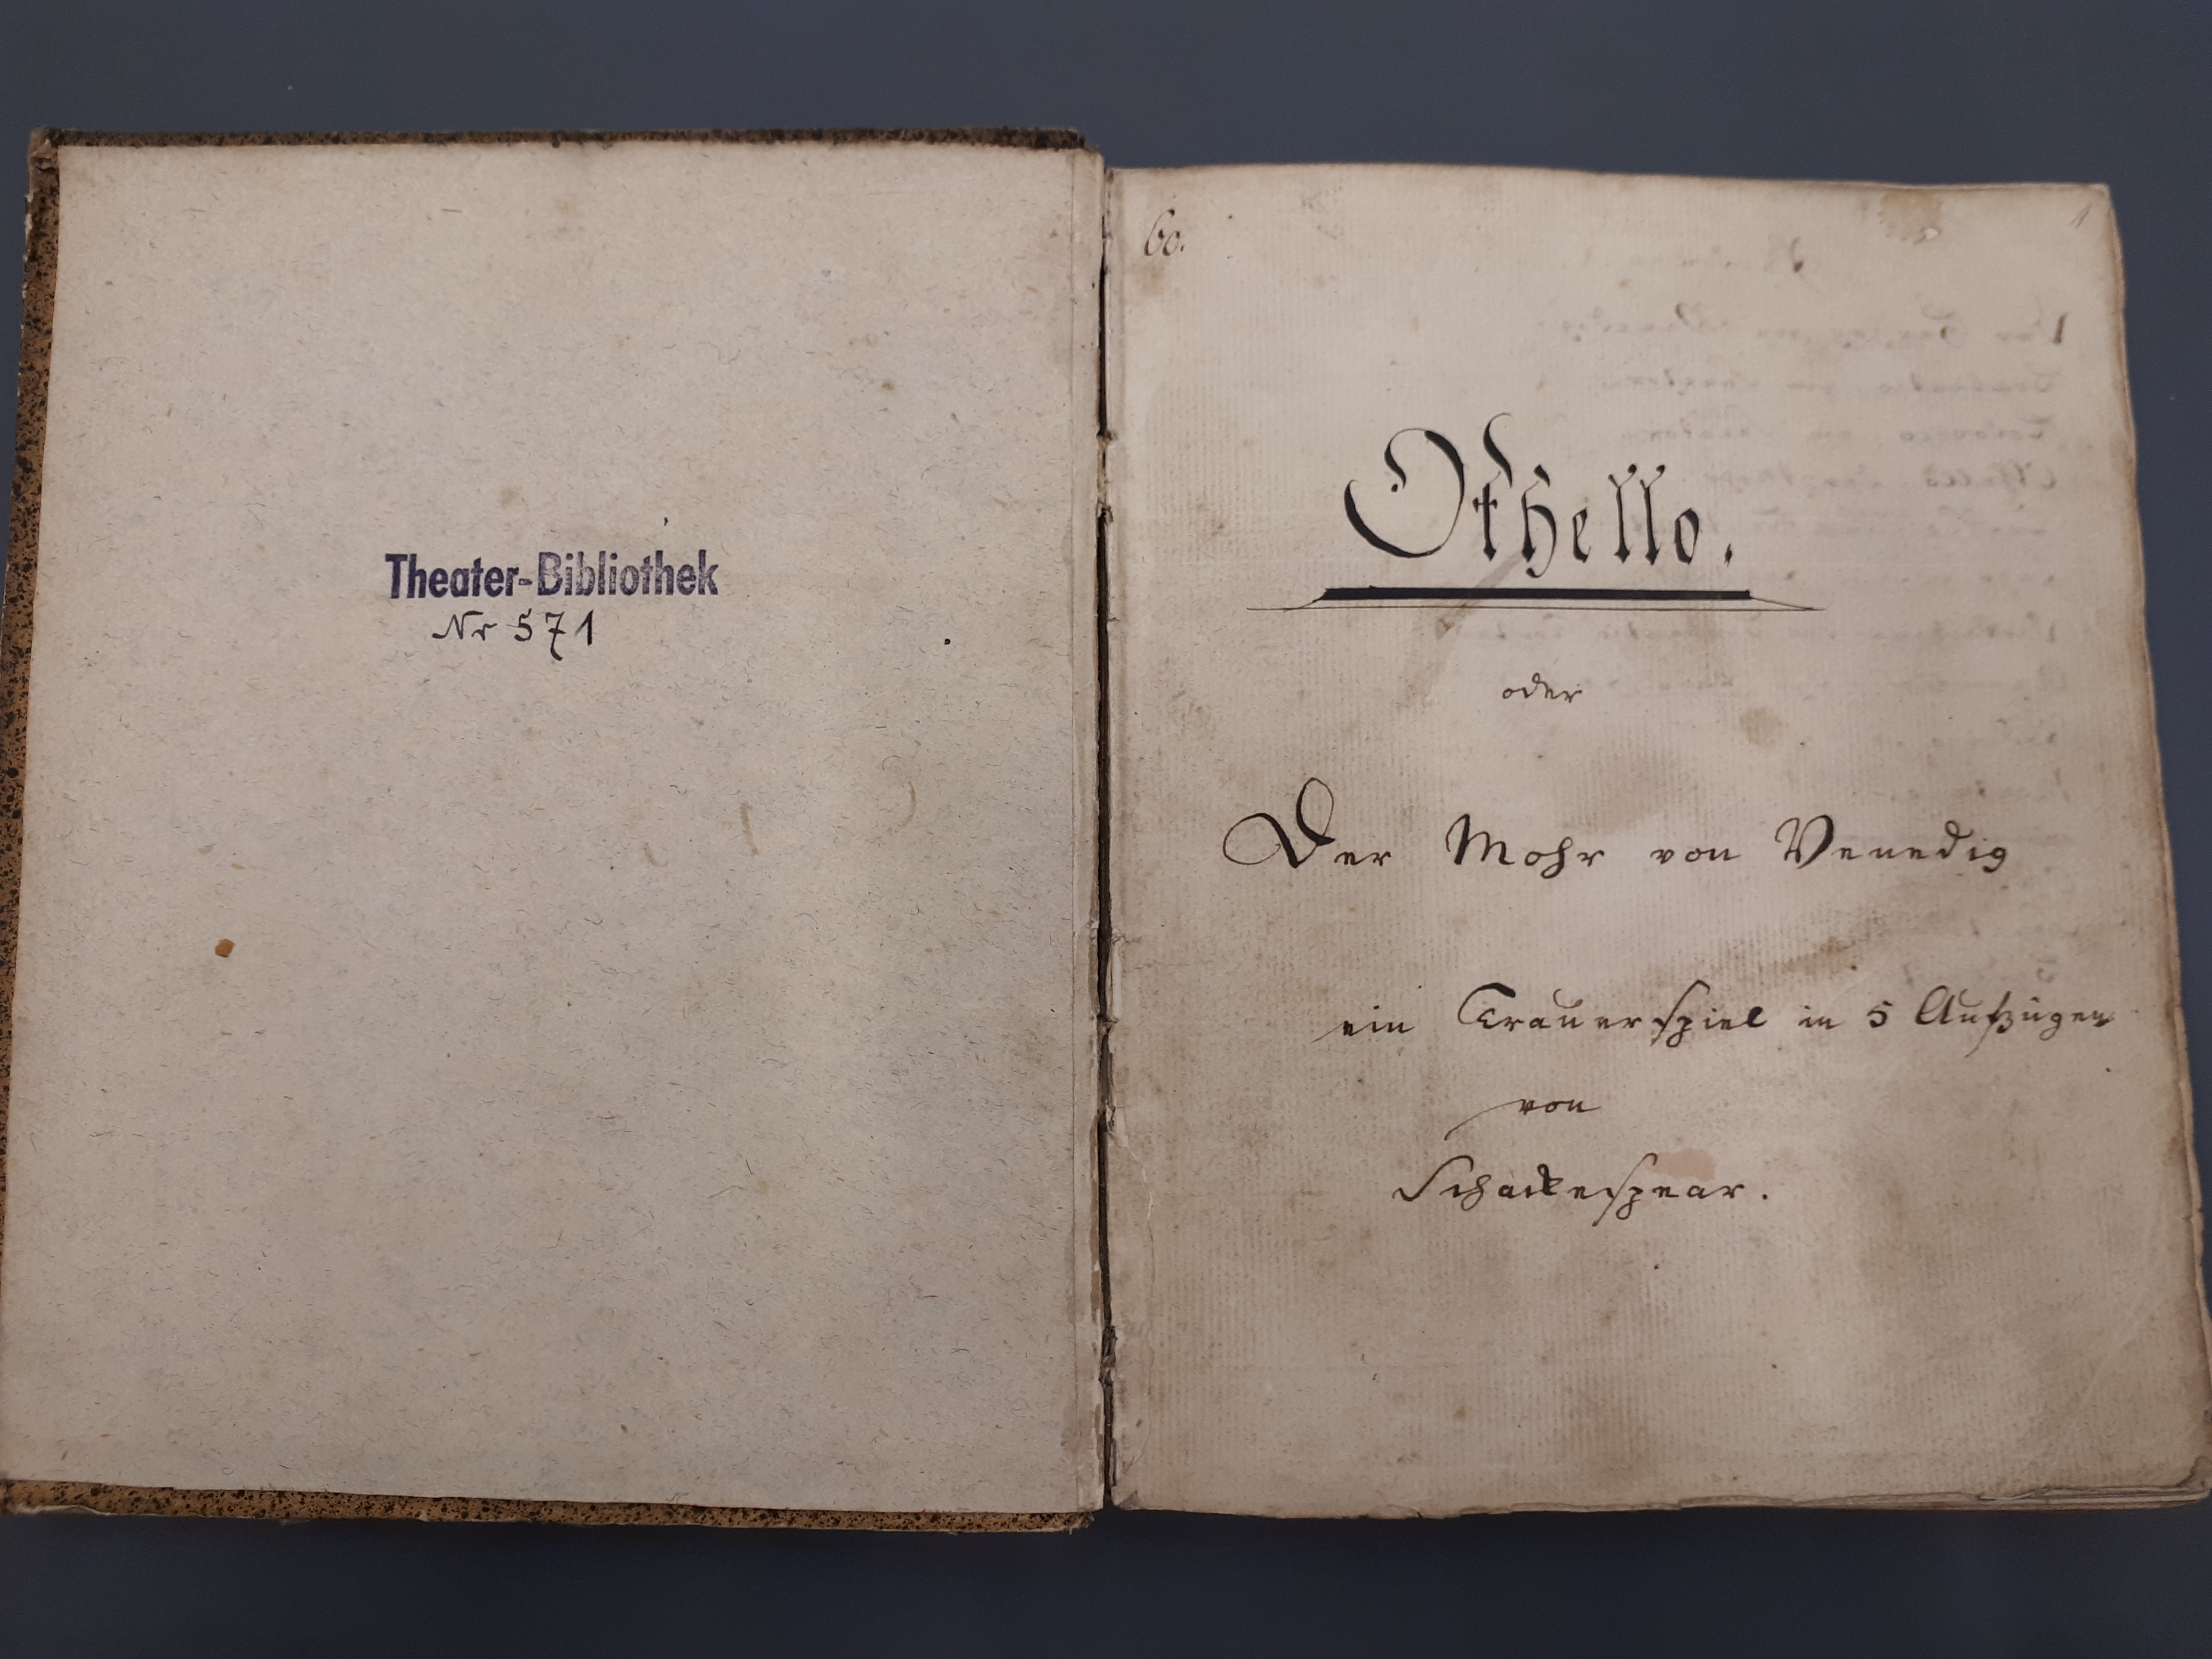 Theater-Bibliothek
Nr 571
60.
1
Othello.
oder
Der Mohr von Venedig
ein Trauerspiel in 5 Aufzügen
von
Schackespear.